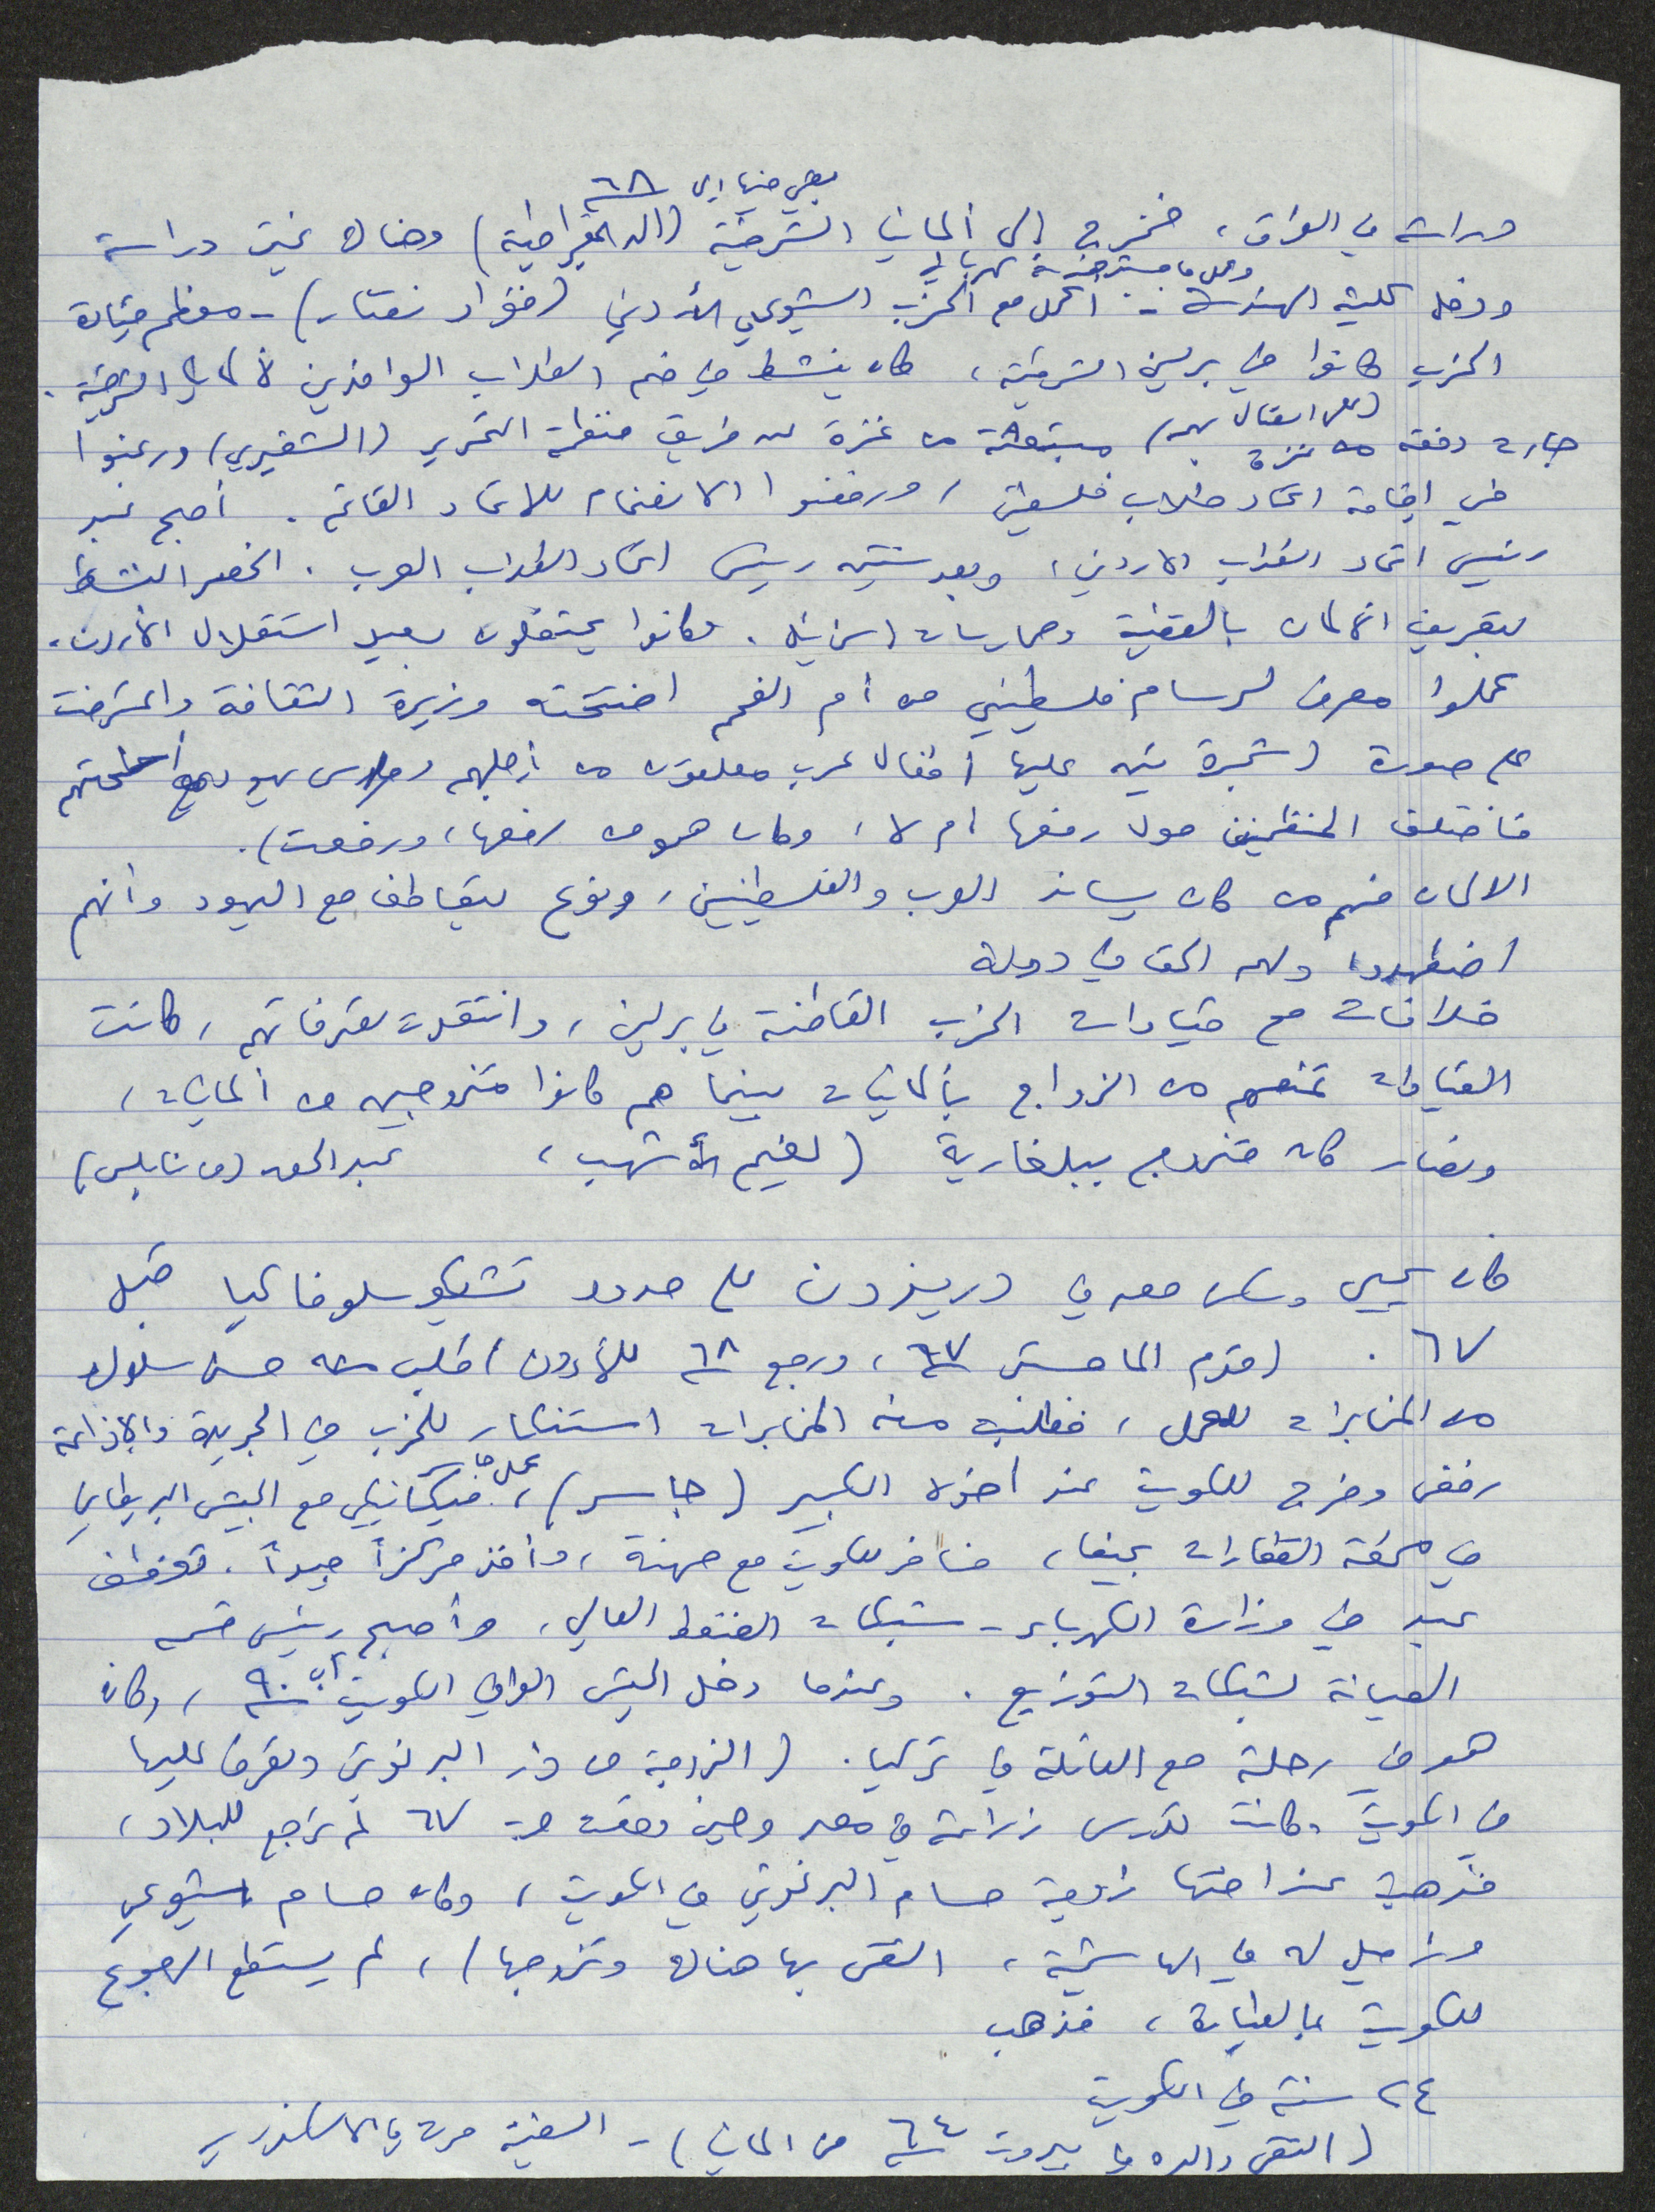 بقي فيها الى ٦٨
دراسته في العراق، فخرج الى ألمانيا الشرقية (الديمقراطية) وهناك غيّر دراسته
وعمل ماجستير هندسة كهربائية
ودخل كلية الهندسة - أكمل مع الحزب الشيوعي الأردني (فؤاد نصار) - معظم قيادة
الحزب كانوا في برلين الشرقية، كان ينشط في ضم الطلاب الوافدين لألمانيا الشرقية.
(على اتصال بهم)
جاءت دفعة من غزة مبتعثة من غزة عن طريق منظمة التحرير (الشقيري) ورغبوا
في اقامة اتحاد طلاب فلسطين، ورفضوا الانضمام للاتحاد القائم. أصبح عبد
رئيس اتحاد الطلاب الاردني، وبعد سنتين رئيس اتحاد الطلاب العرب. انحصر النشاط
بتعريف الالمان بالقضية وممارسات اسرائيل. وكانوا يحتفلون بعيد استقلال الأردن.
عملوا معرض لرسام فلسطيني من أم الفحم افتتحته وزيرة الثقافة واعترضت
على صورة (شجرة تين عليها اطفال عرب معلقون من أرجلهم و يهود أسلحتهم
فاختلف المنظمين حول رفعها ام لا، وكان هو من رفعها، ورفعت).
الالمان منهم من كان يساند العرب والفلسطينيين، ونوع يتعاطف مع اليهود وأنهم
اضطهدوا ولهم الحق في دولة
خلافات مع قيادات الحزب القاطنة في برلين، وانتقدت تصرفاتهم، كانت
القيادات تمنعهم من الزواج بألمانيات بينما هم كانوا متزوجين من ألمانيات،
ونصار كان متزوج ببلغارية (نعيم الأشهب، عبد الحق (من نابلس)
كان يحيى وسكن معه في دريزدن على حدود تشيكوسلوفاكيا قبل
٦٧. (قدم الماجستير ٦٧، ورجع ٦٨ للأردن) طلب منه حسن سلوك
من المخابرات للعمل، فطلبت منه المخابرات استنكار للحزب في الجريدة والإذاعة
رفض وخرج للكويت عند أخوه الكبير (جاسر)، عمل جاسر ميكانيكي مع الجيش البريطاني
في محطة القطارات بحيفا، سافر للكويت مع مهنة، وأخذ مركزاً جيداً. توظف
عبد في وزارة الكهرباء - شبكات الضغط العالي، وأصبح رئيس قسم
الصيانة لشبكات التوزيع. وعندما دخل الجيش العراقي الكويت آب ٩٠، وكان
هو في رحلة مع العائلة في تركيا. (الزوجة من دار البرغوثي وتعرف عليها
في الكويت وكانت تدرس زراعة في مصر وحين وقعت حرب ٦٧ لم ترجع للبلاد،
فذهبت عند اختها زوجة حسام البرغوثي في الكويت، وكان حسام شيوعي
وزميل له في الهاشمية، التقى بها هناك وتزوجها)، لم يستطع الرجوع
للكويت بالطيارة، فذهب
٢٤ سنة في الكويت
(التقى والده في بيروت ٦٤ من المانيا) - السفينة مرت في الاسكندرية